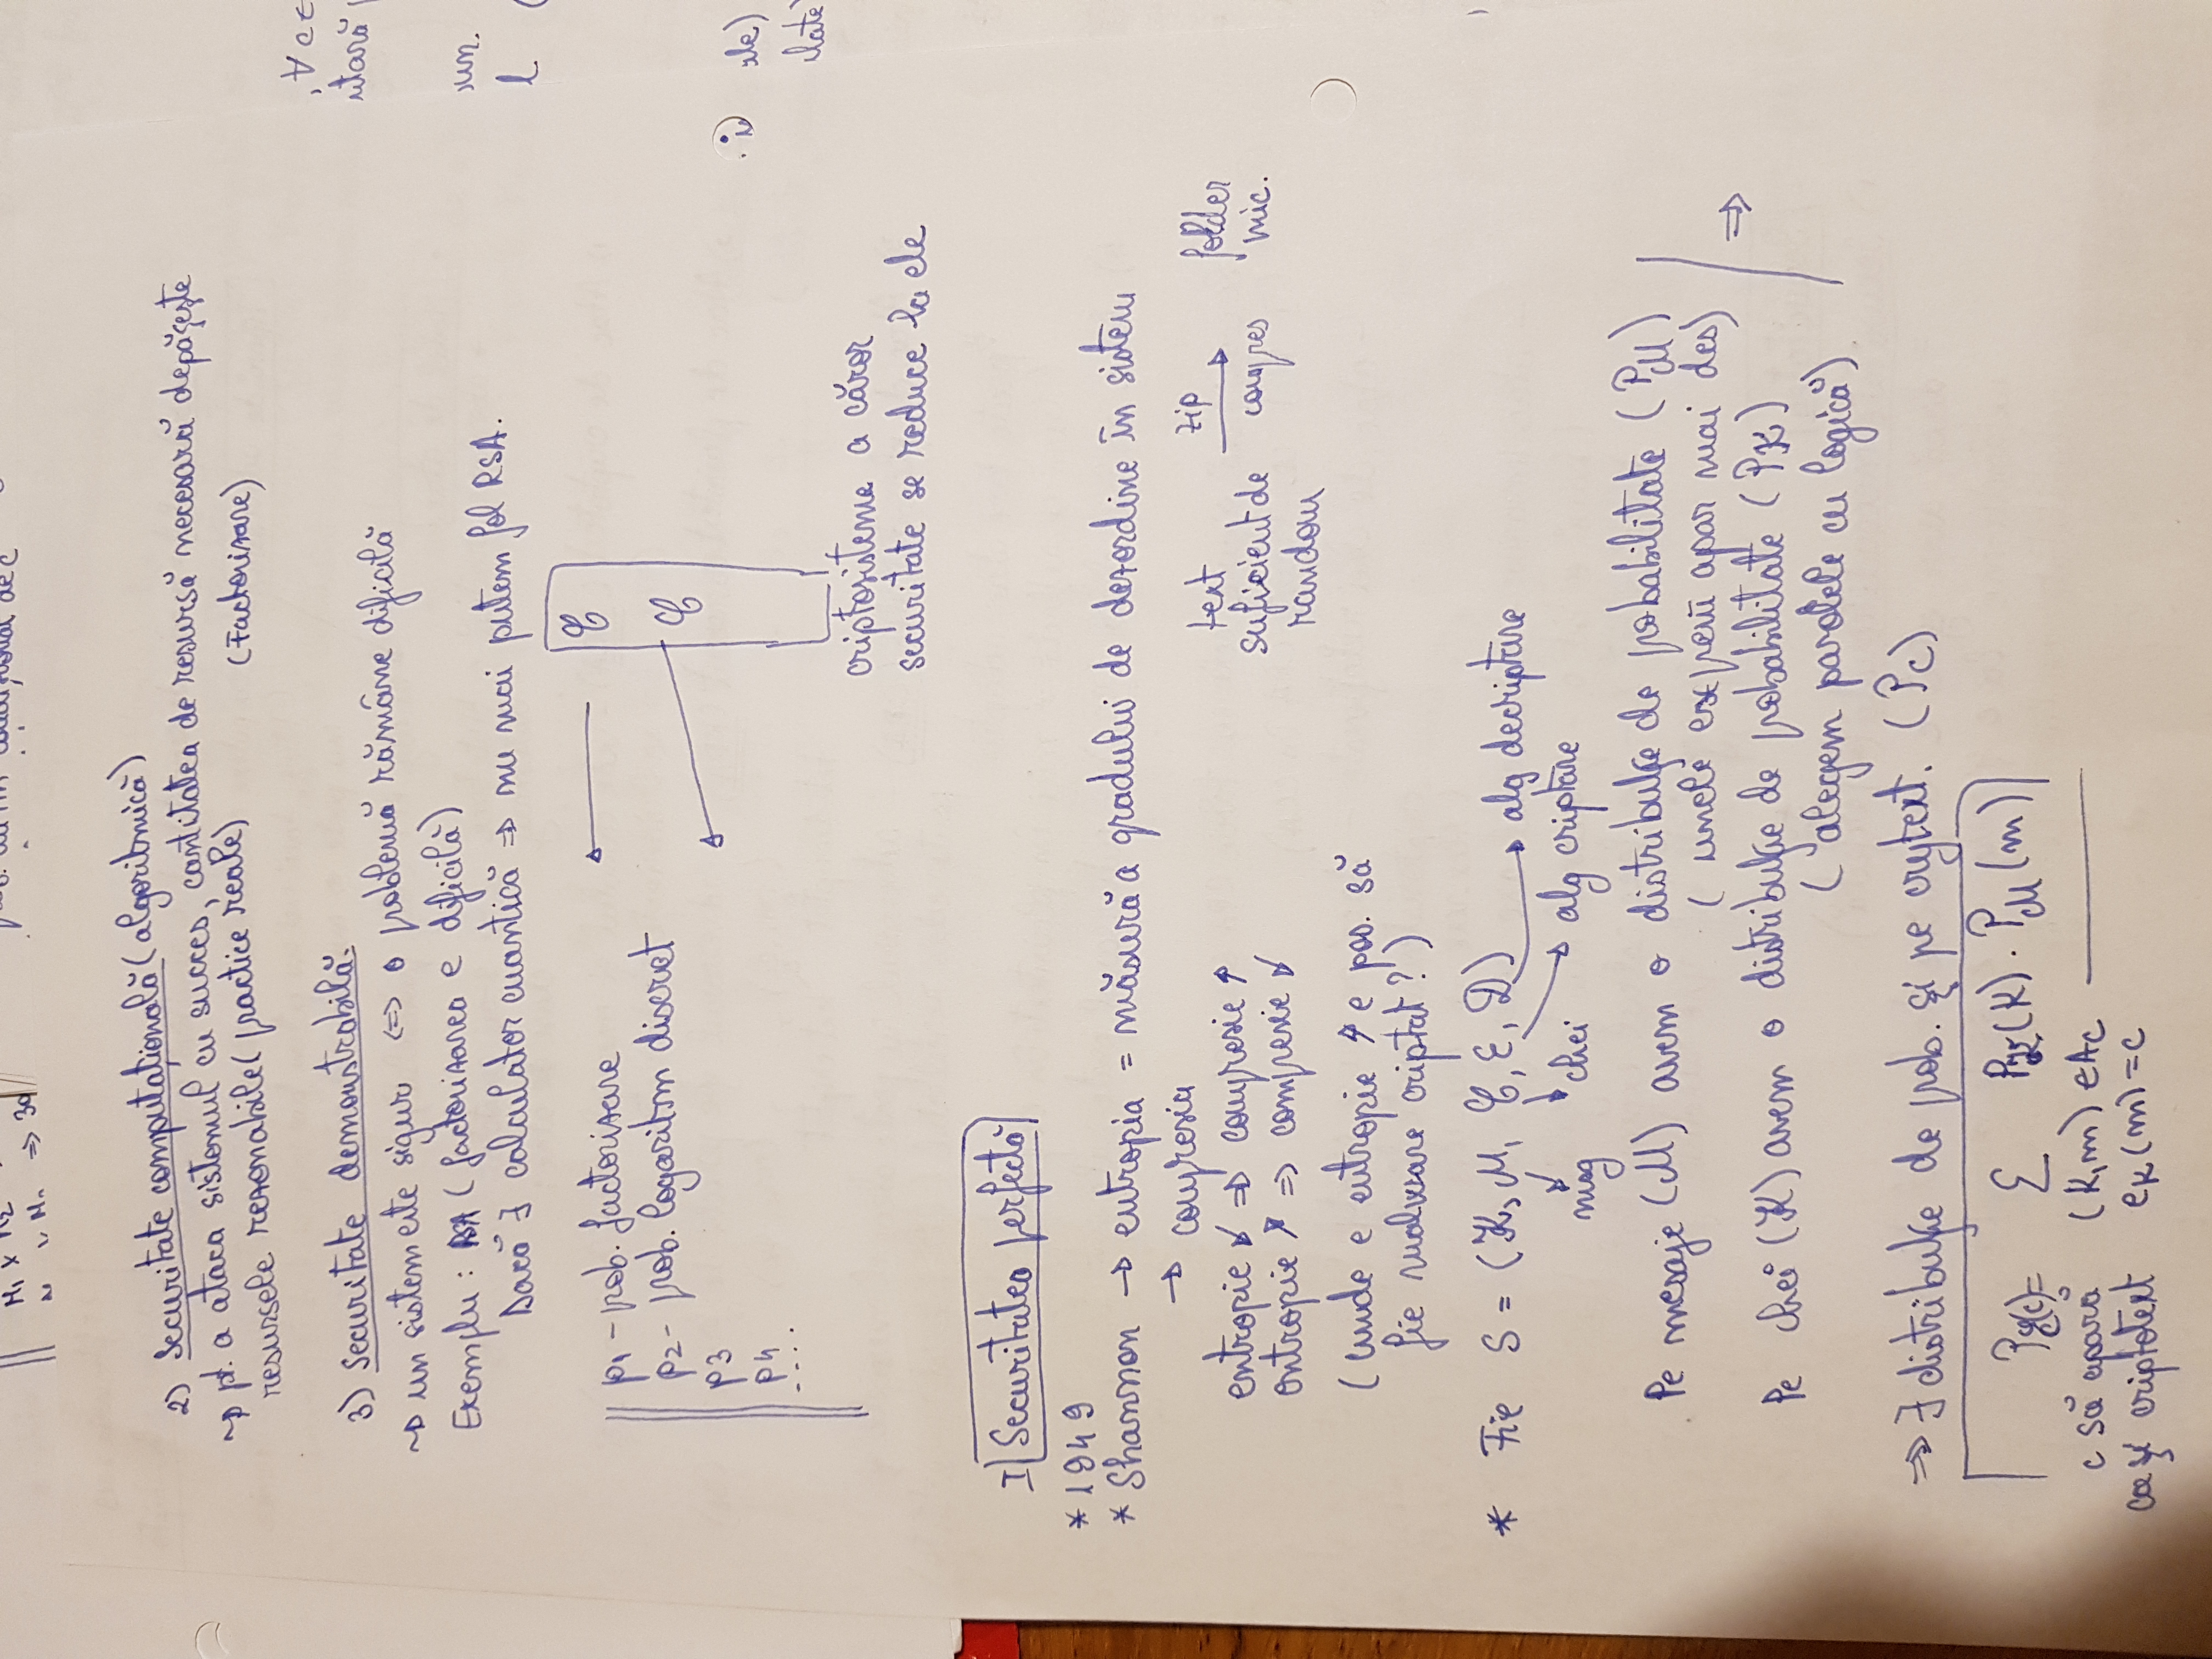 M₁ x M₂
=> 30
2) Securitate computațională (algoritmică)
~> pt. a ataca sistemul cu succes, cantitatea de resursă necesară depășește
resursele rezonabile (practice reale) (Factorizare)
3) Securitate demonstrabilă.
~> un sistem este sigur <=> o problemă rămâne dificilă
Exemplu: RSA (factorizarea e dificilă)
Dacă ∃ calculator cuantică => nu mai putem fol RSA.
p1 - prob. factorizare
p2 - prob. logaritm discret
p3
p4
....
C
C
criptosisteme a căror
securitate se reduce la ele
, ∀ c ∈
l
I Securitatea perfectă
* 1949
* Shannon → entropia = măsură a gradului de dezordine în sistem
→ compresia
entropie ↙ => compresie ↗
entropie ↗ => compresie ↙
text suficient de random
zip
compres
folder mic.
(unde e entropie ↗ e pos. să
fie malware criptat?)
* Fie S = (K, M, C, E, D) → alg decriptare
msg chei alg criptare
Pe mesaje (M) avem o distribuție de probabilitate (P_M)
(unele expresii apar mai des)
=>
Pe chei (K) avem o distribuție de probabilitate (P_K)
(alegem parolele cu logică)
=> ∃ distribuție de prob. și pe crytext. (P_C)
P_C(c) = Σ P_K(K) · P_M(m)
c să apară (K,m) ∈ A_C
ca și criptotext e_K(m) = c